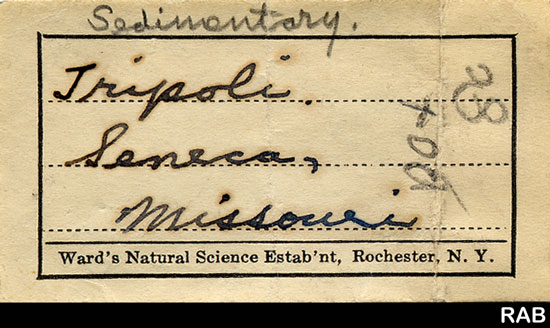 Sedimentary.
Tripoli.
Seneca,
Missouri
Ward's Natural Science Estab'nt, Rochester, N. Y.
RAB